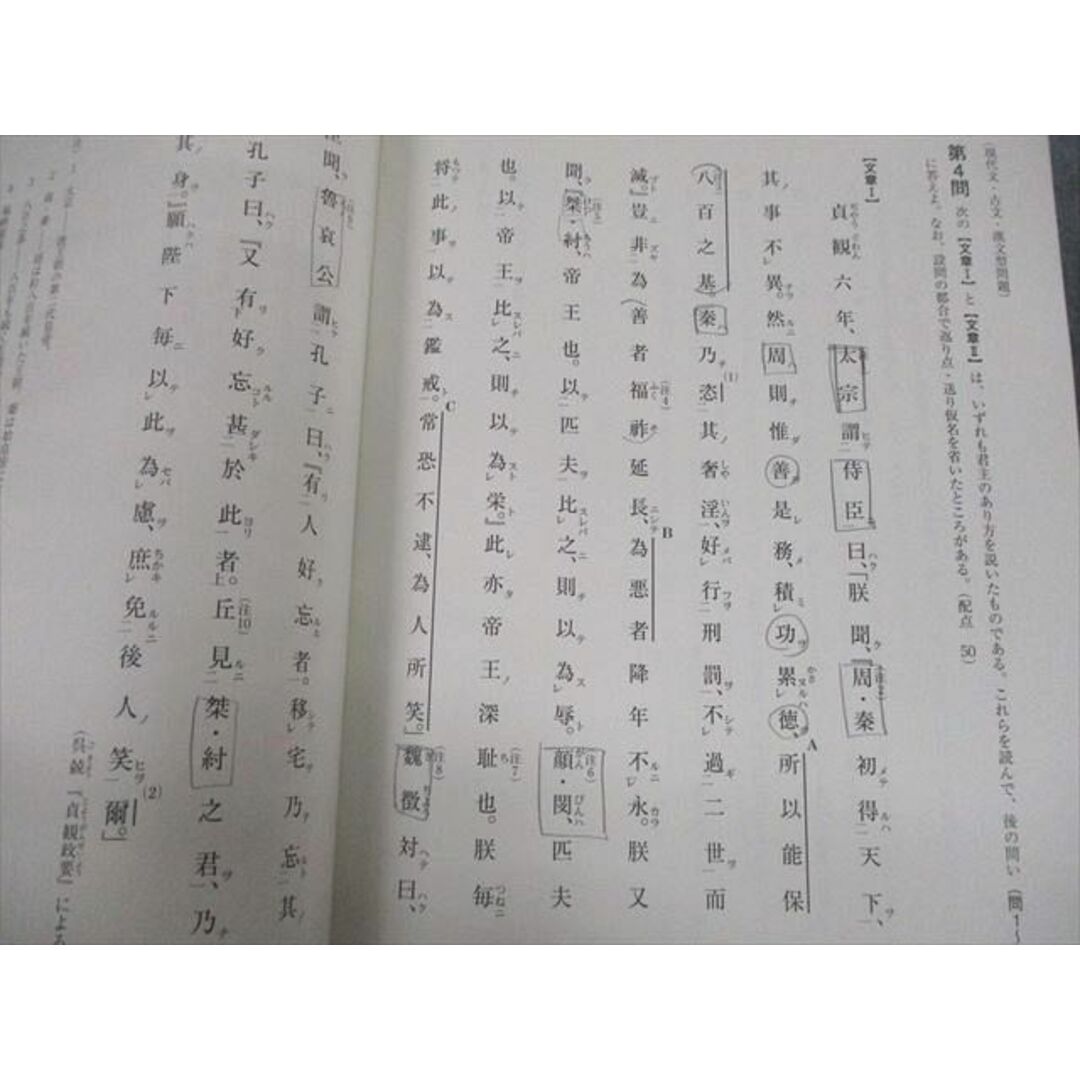 (現代文・古文・漢文型問題)
第4問 次の【文章Ⅰ】と【文章Ⅱ】は、いずれも君主のあり方を説いたものである。これらを読んで、後の問い(問1〜
に答えよ。なお、設問の都合で返り点・送り仮名を省いたところがある。(配点 50)
【文章Ⅰ】
貞観六年、太宗謂侍臣曰、「朕聞、『周・秦初得天下、
其事不異。然周則惟善是務、積功累徳、所以能保
八百之基。秦乃恣其奢淫、好行刑罰、不過二世而
滅。』豈非為善者福祚延長、為悪者降年不永。朕又
聞、『桀・紂、帝王也。以匹夫比之、則以為辱。顔・閔、匹夫
也。以帝王比之、則以為栄。』此亦帝王深恥也。朕毎
将此事以為鑑戒。常恐不逮、為人所笑。」魏徴対曰、
聞、魯哀公謂孔子曰、『有人好忘者。移宅乃忘其
孔子曰、『又有好忘甚於此者。丘見桀・紂之君、乃
其身。』願陛下毎以此為慮、庶免後人笑爾。」
(呉兢『貞観政要』による